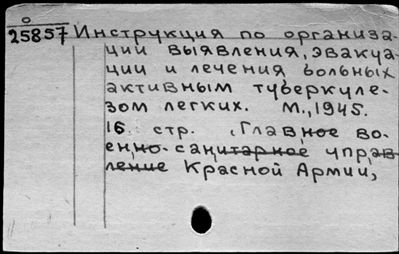 о
25857 Инструкция по организа-
ции выявления, эвакуа-
ции и лечения больных
активным туберкуле-
зом легких. М., 1945.
16 стр. (Главное во-
енно-санитарное управ-
ление Красной Армии)